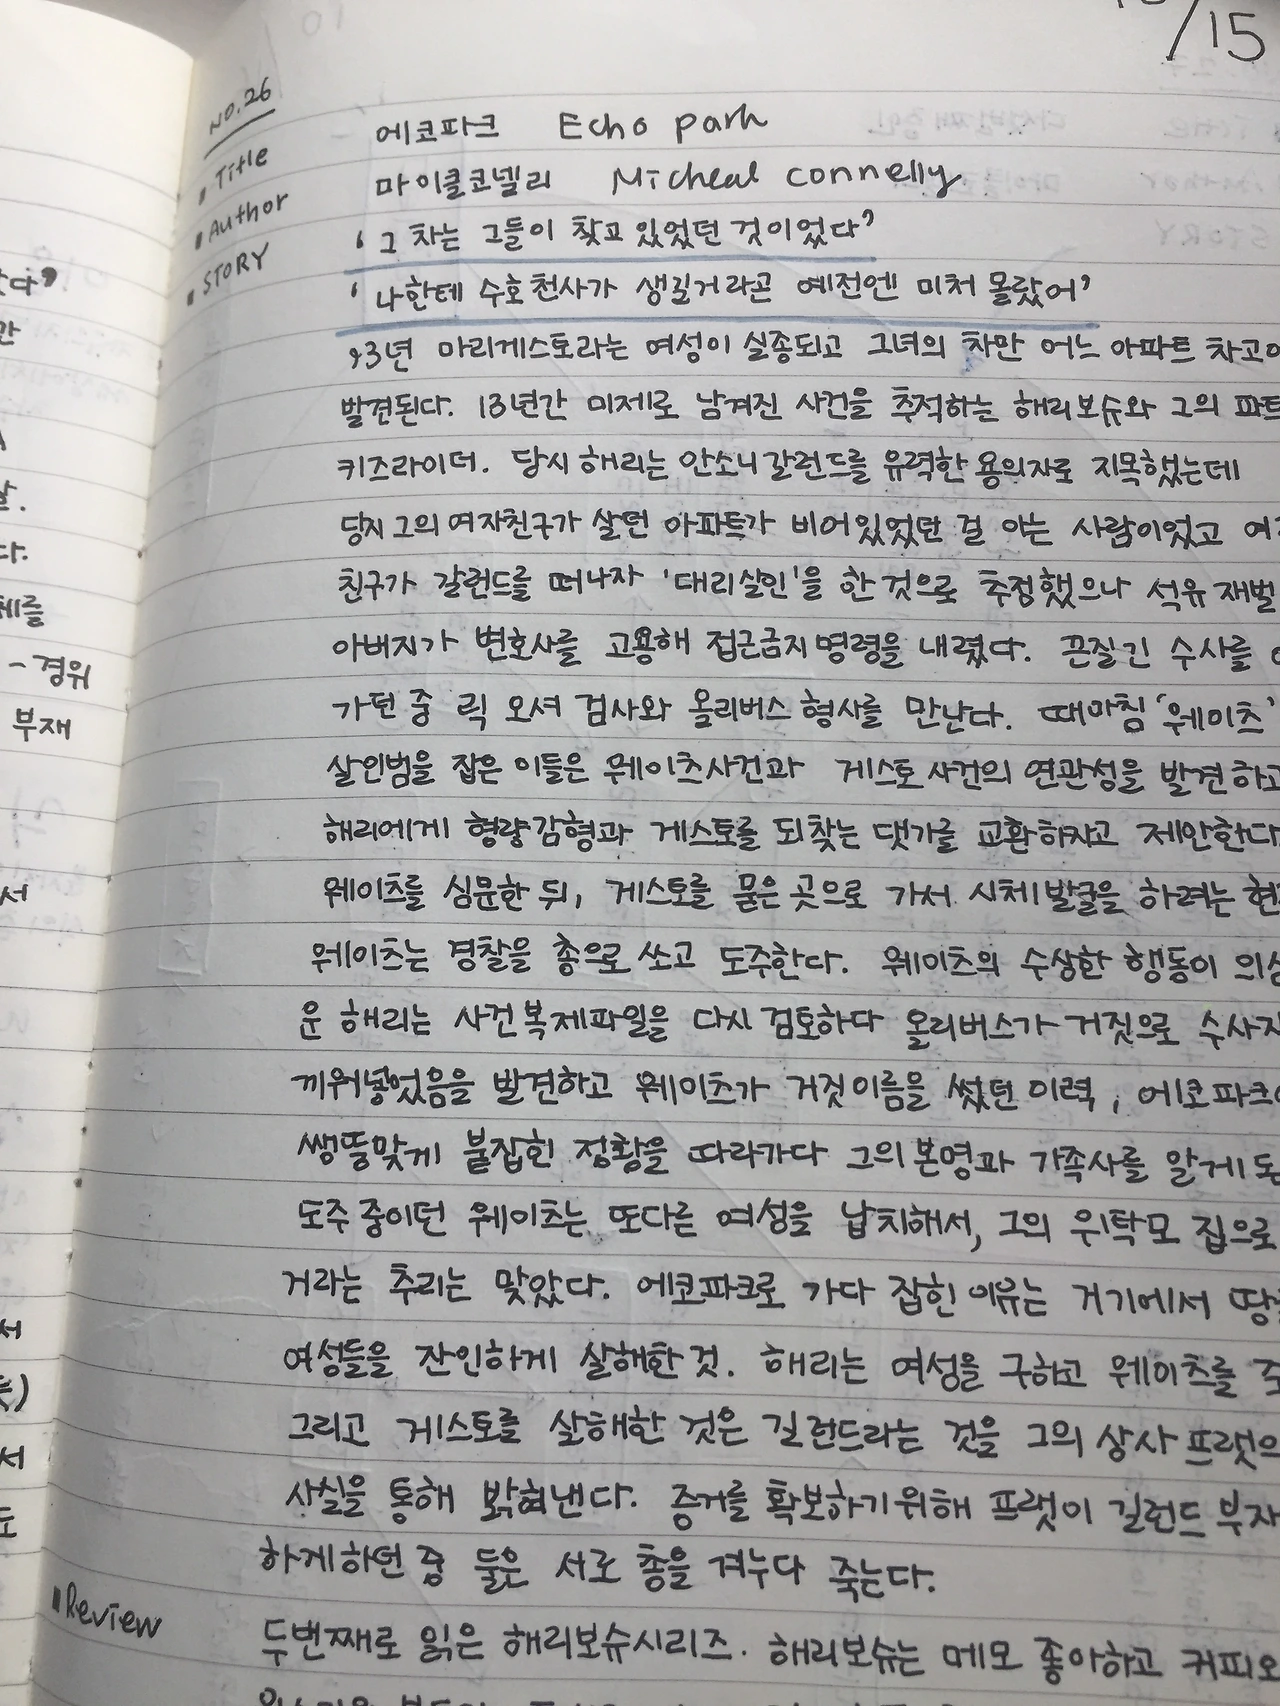 /15
NO.26
Title 에코파크 Echo park
Author 마이클코넬리 Micheal connelly
STORY ‘그 차는 그들이 찾고 있었던 것이었다’
‘나한테 수호천사가 생길거라곤 예전엔 미처 몰랐어’
93년 마리게스토라는 여성이 실종되고 그녀의 차만 어느 아파트 차고에
발견된다. 13년간 미제로 남겨진 사건을 추적하는 해리보슈와 그의 파트
키즈라이더. 당시 해리는 안소니갈런드를 유력한 용의자로 지목했는데
당시 그의 여자친구가 살던 아파트가 비어있었던 걸 아는 사람이었고 여
친구가 갈런드를 떠나자 '대리살인'을 한 것으로 추정했으나 석유 재벌
아버지가 변호사를 고용해 접근금지명령을 내렸다. 끈질긴 수사를
가던 중 릭 오셔 검사와 올리버스 형사를 만난다. 때마침 '웨이츠'
살인범을 잡은 이들은 웨이츠사건과 게스토 사건의 연관성을 발견하고
해리에게 형량감형과 게스토를 되찾는 댓가를 교환하자고 제안한다
웨이츠를 심문한 뒤, 게스토를 묻은 곳으로 가서 시체발굴을 하려는 현
웨이츠는 경찰을 총으로 쏘고 도주한다. 웨이츠의 수상한 행동이 의심
운 해리는 사건복제파일을 다시 검토하다 올리버스가 거짓으로 수사
끼워넣었음을 발견하고 웨이츠가 거짓이름을 썼던 이력, 에코파크
쌩뚱맞게 붙잡힌 정황을 따라가다 그의 본명과 가족사를 알게
도주 중이던 웨이츠는 또다른 여성을 납치해서, 그의 위탁모 집으로
거라는 추리는 맞았다. 에코파크로 가다 잡힌 이유는 거기에서 땅
여성들을 잔인하게 살해한 것. 해리는 여성을 구하고 웨이츠를
그리고 게스토를 살해한 것은 길런드라는 것을 그의 상사 프랫의
사실을 통해 밝혀낸다. 증거를 확보하기위해 프랫이 길런드 부자
하게하던 중 둘은 서로 총을 겨누다 죽는다.
Review 두번째로 읽은 해리보슈시리즈. 해리보슈는 메모 좋아하고 커피
다”
간
다.
체를
- 경위
부재
서
서
서
도